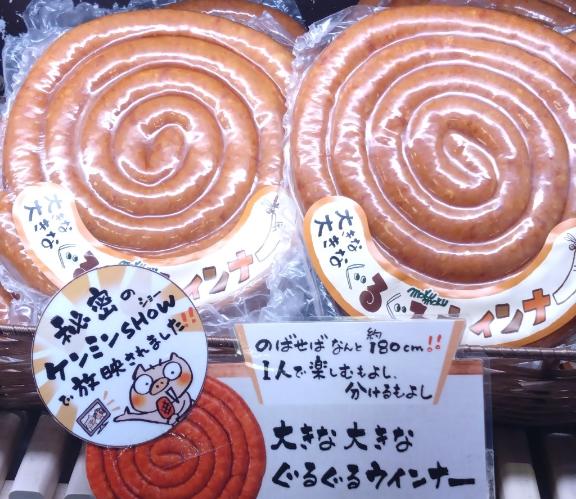 大きな
大きな
ぐるぐるウインナー
大きな
大きな
ぐるぐるウインナー
秘密の
ケンミンSHOW
ショー
で放映されました!!
のばせばなんと約180cm!!
1人で楽しむもよし、
分けるもよし
大きな大きな
ぐるぐるウインナー